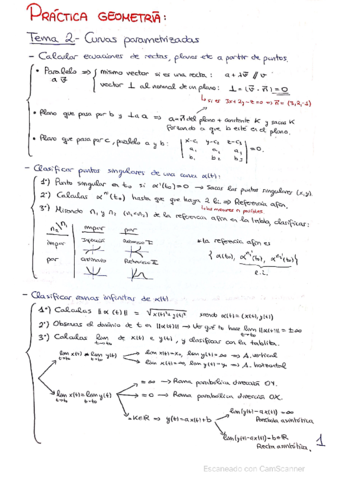 PRÁCTICA GEOMETRÍA:
Tema 2.- Curvas parametrizadas
- Calcular ecuaciones de rectas, planos etc a partir de puntos.
• Paralelo a v⃗ ⇒ { mismo vector si es una recta: a + λv⃗ // v⃗
vector ⊥ al normal de un plano: ⊥ = ⟨v⃗ · n⃗⟩ = 0
si es 3x+2y-z=0 ⇒ n⃗ = (3,2,-1)
• Plano que pasa por b y ⊥ a a ⇒ a = n⃗ del plano + constante K y sacas K
forzando a que b esté en el plano.
• Plano que pasa por c, paralelo a y b: | x-c₁ y-c₂ z-c₃ |
| a₁ a₂ a₃ | = 0.
| b₁ b₂ b₃ |
- Clasificar puntos singulares de una curva α(t):
1º) Punto singular en t₀ si α'(t₀) = 0 → Sacas los puntos singulares (x,y).
2º) Calculas αⁿ(t₀) hasta que haya 2 l.i. ⇒ Referencia afín.
3º) Mirando n₁ y n₂ (n₁<n₂) de la referencia afín en la tabla, clasificar:
n₁ \ n₂ impar par
impar Inflexión Retroceso I
par ordinario Retroceso II
• La referencia afín es
{ α(t₀), αⁿ¹(t₀), αⁿ²(t₀) }
l.i.
- Clasificar ramas infinitas de α(t).
1º) Calculas ||α(t)|| = √(x(t)² + y(t)²) siendo α(t) = (x(t), y(t))
2º) Observas el dominio de t en ||α(t)|| → Ver qué t₀ hace lim ||α(t)|| = ±∞
t→t₀
3º) Calculas lim de x(t) e y(t), y clasificar con la tablita.
t→t₀
lim x(t) ≠ lim y(t)
lim x(t) = x₀, lim y(t) = ∞ ⇒ A. vertical
lim x(t) = ∞, lim y(t) = y₀ ⇒ A. horizontal
lim x(t) = lim y(t)
= ∞ → Rama parabólica dirección OY.
= 0 → Rama parabólica dirección OX.
= K∈ℝ → y(t) = ax(t) + b
lim (y(t) - ax(t)) = ∞
Parábola asintótica
lim (y(t) - ax(t)) = b∈ℝ
Recta asintótica.
1
Escaneado con CamScanner